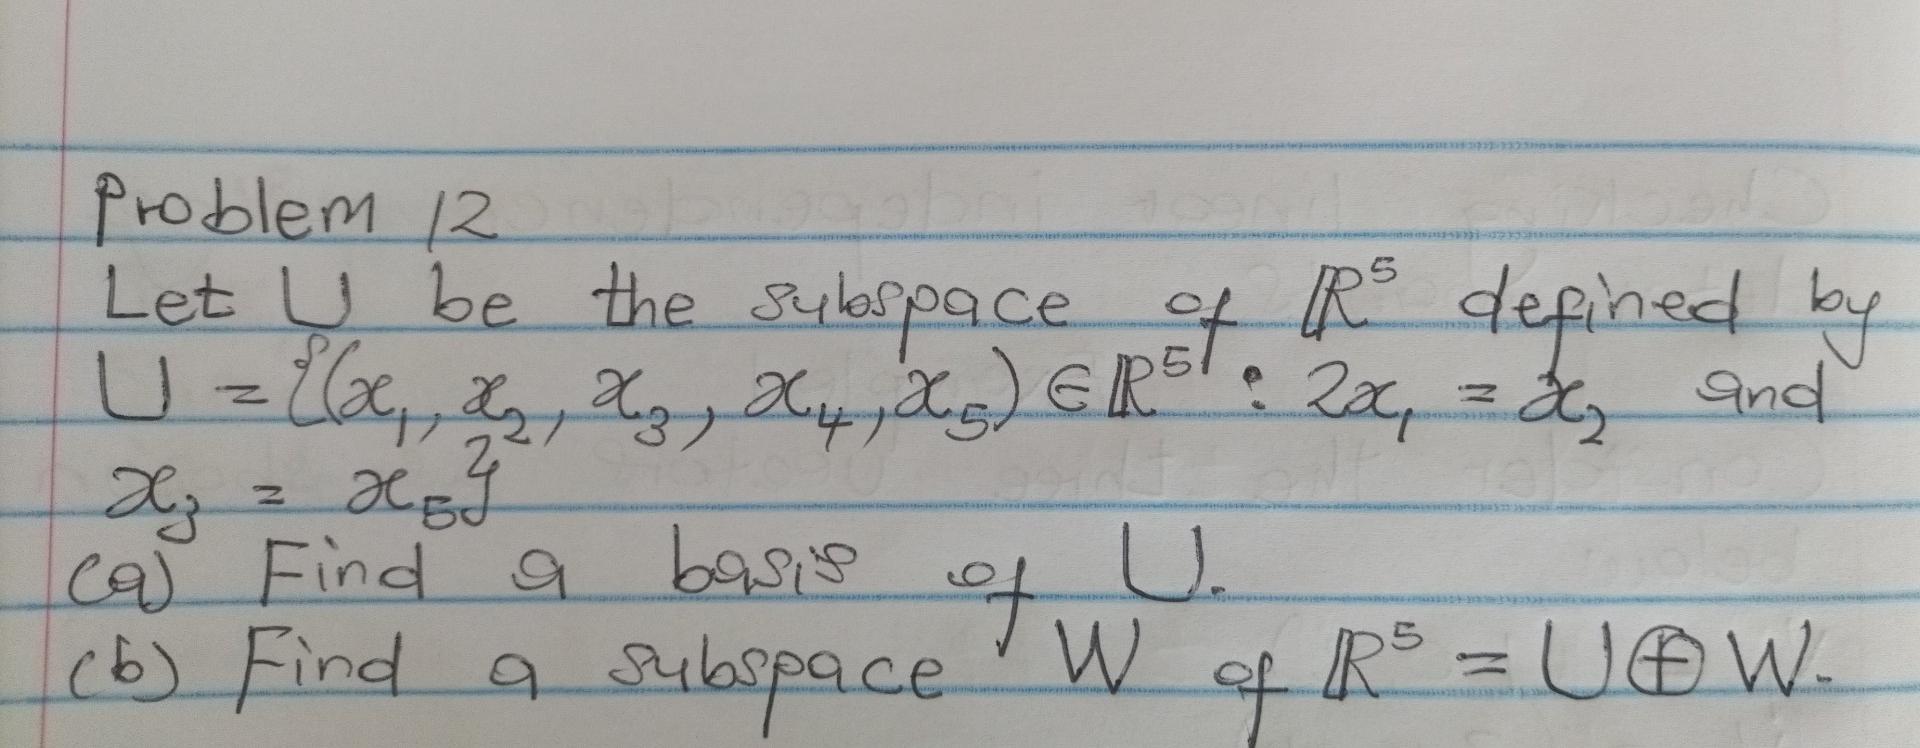 Problem 12
Let U be the subspace of ℝ⁵ defined by
U = {(x₁, x₂, x₃, x₄, x₅) ∈ ℝ⁵ : 2x₁ = x₂ and
x₃ = x₅}
(a) Find a basis of U.
(b) Find a subspace W of ℝ⁵ = U ⊕ W.